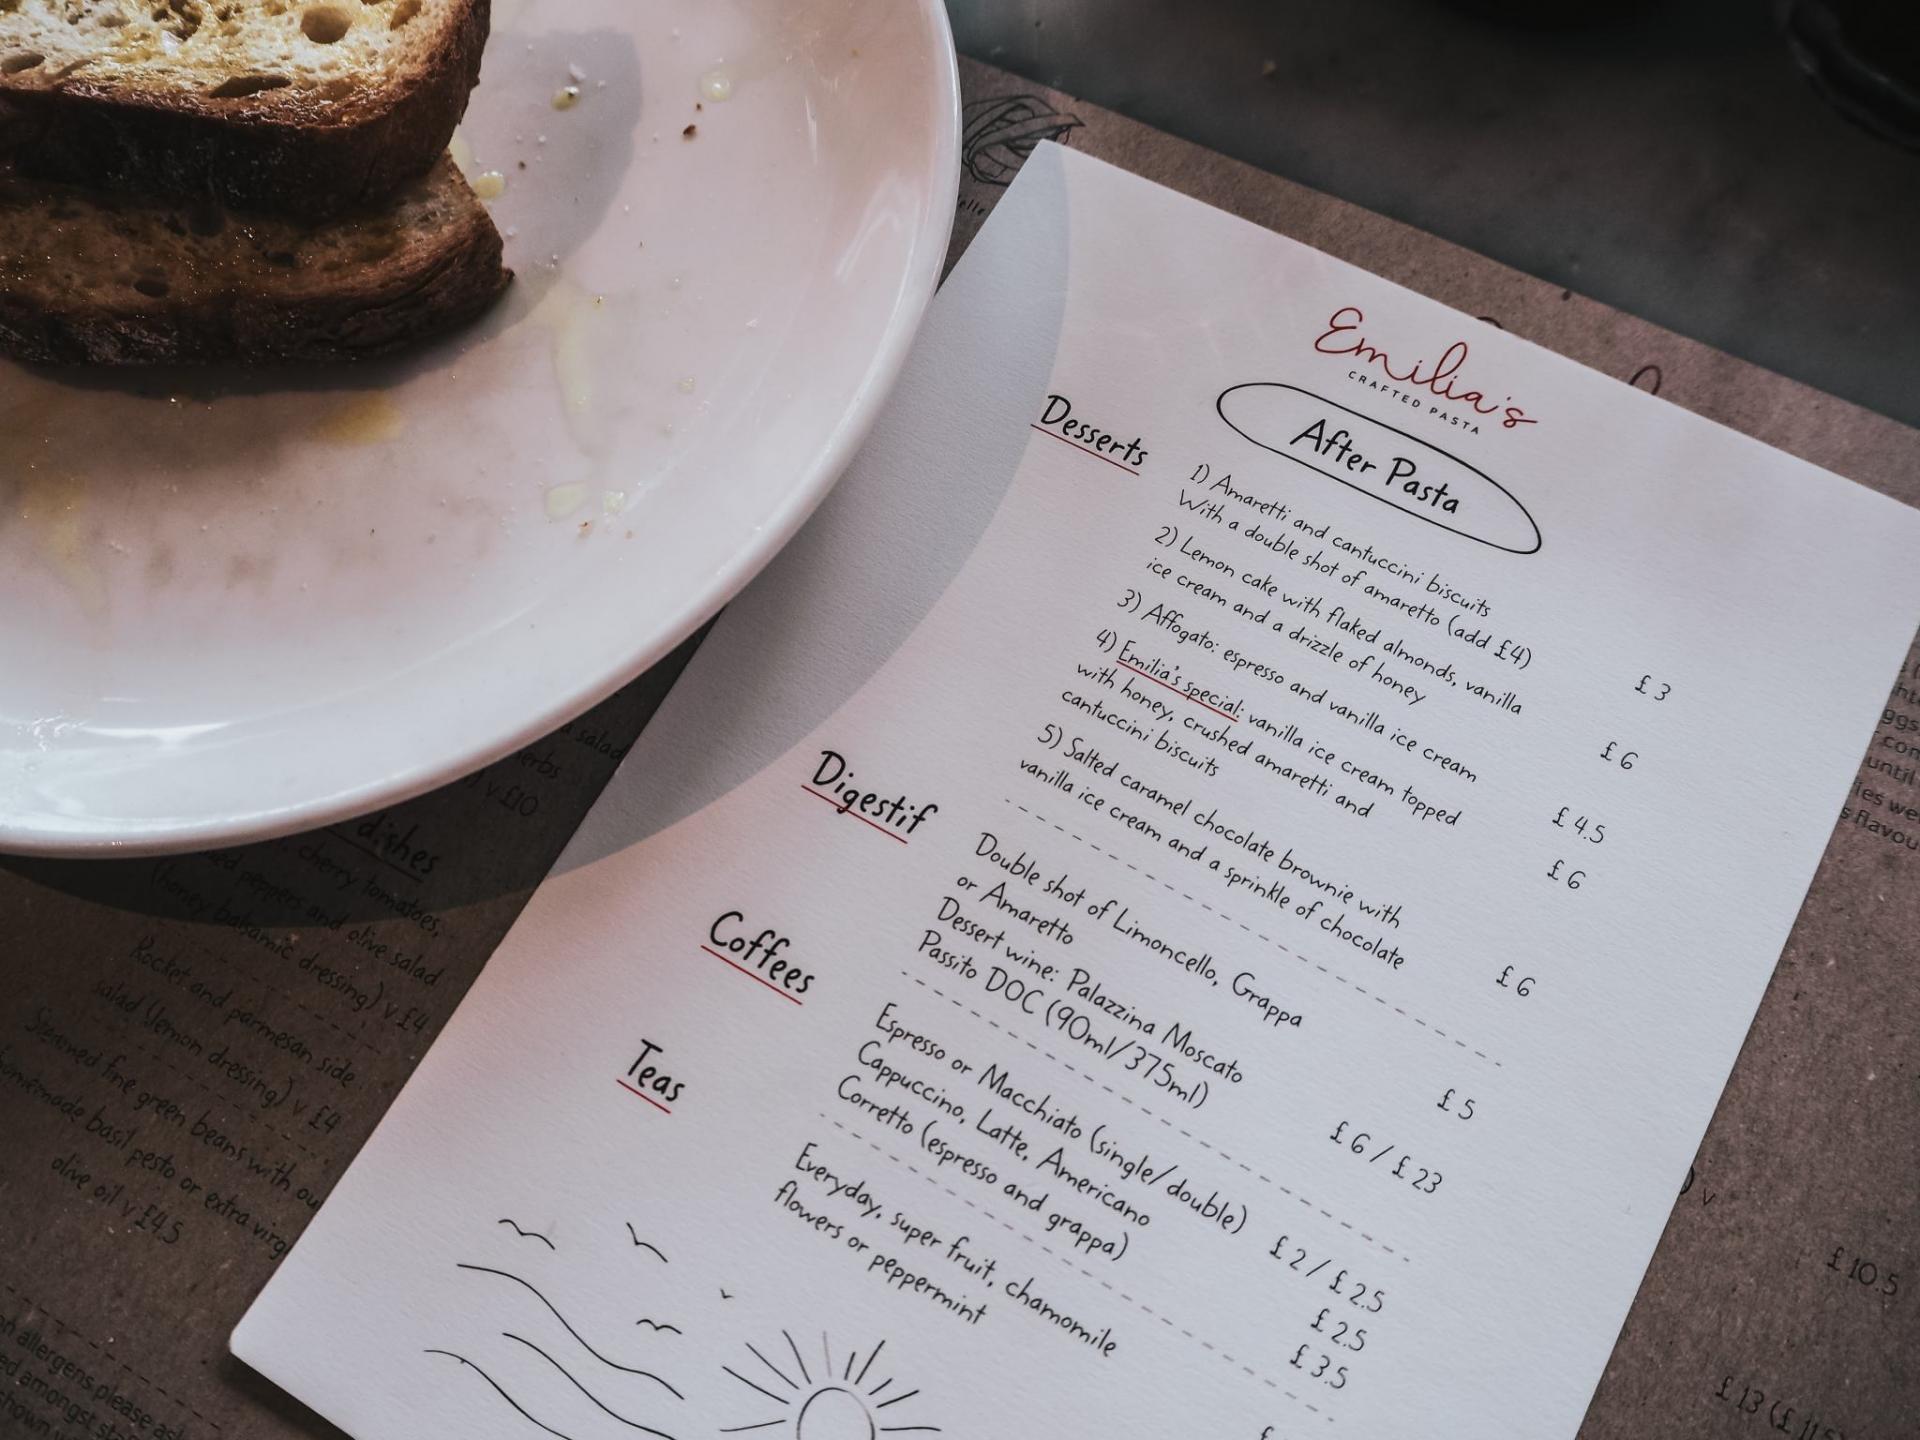 Emilia's
CRAFTED PASTA
After Pasta
Desserts
1) Amaretti and cantuccini biscuits
With a double shot of amaretto (add £4)
£3
2) Lemon cake with flaked almonds, vanilla
ice cream and a drizzle of honey
£6
3) Affogato: espresso and vanilla ice cream
£4.5
4) Emilia's special: vanilla ice cream topped
with honey, crushed amaretti and
cantuccini biscuits
£6
5) Salted caramel chocolate brownie with
vanilla ice cream and a sprinkle of chocolate
£6
Digestif
Double shot of Limoncello, Grappa
or Amaretto
£5
Dessert wine: Palazzina Moscato
Passito DOC (90ml/375ml)
£6 / £23
Coffees
Espresso or Macchiato (single/double)
£2 / £2.5
Cappuccino, Latte, Americano
£2.5
Corretto (espresso and grappa)
£3.5
Teas
Everyday, super fruit, chamomile
flowers or peppermint
£
salad
herbs
v £10
dishes
cherry tomatoes,
peppers and olive salad
(honey balsamic dressing) v £4
Rocket and parmesan side
salad (lemon dressing) v £4
Steamed fine green beans with our
homemade basil pesto or extra virg
olive oil v £4.5
on allergens please ask
amongst
shown
until
flavou
v
£10.5
£13 (£11.5